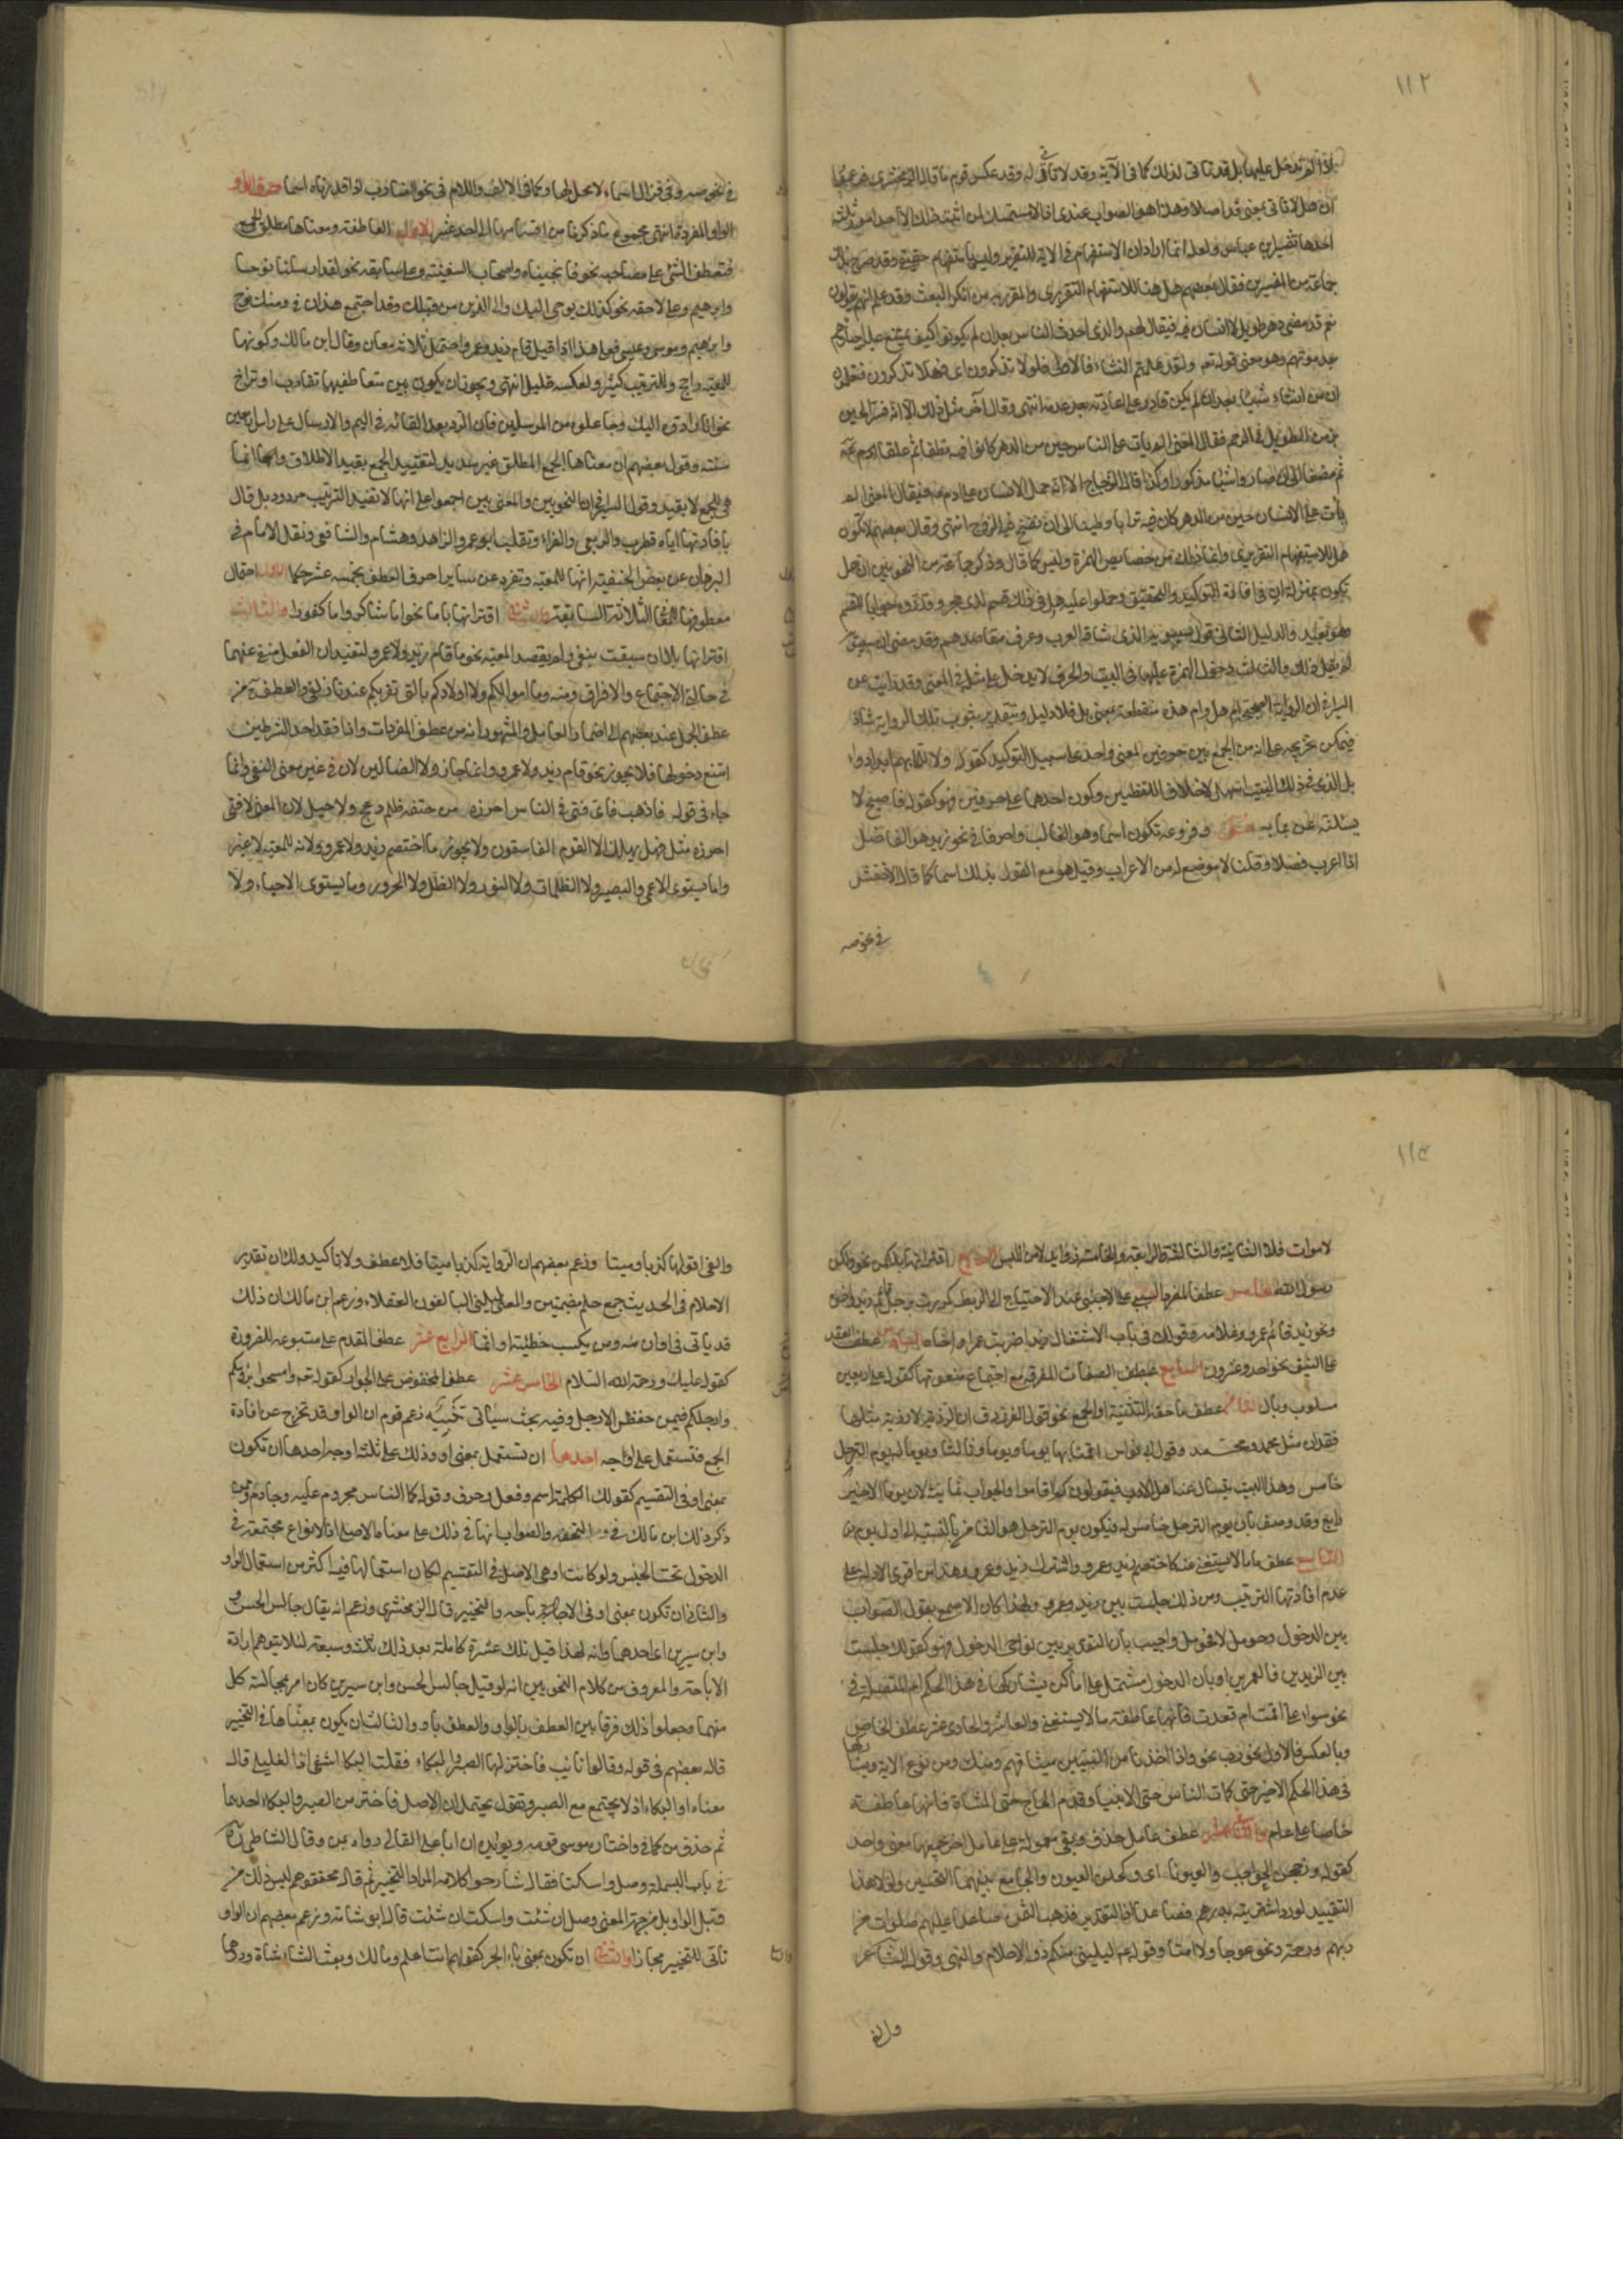 ١١٢
اذا لم تدخل عليها بل قد تاتى لذلك كما فى الآية وقد لا تاتى له وقد عكس قوم ما قاله الزمخشرى فزعموا
ان هل لا تاتى بمعنى قد اصلا وهذا هو الصواب عندى اذ لا متمسك لمن اثبت ذلك الا احد امور ثلثة
احدها تفسير ابن عباس ولعله انما اراد ان الاستفهام فى الاية للتقرير وليس باستفهام حقيقى وقد صرح بذلك
جماعة من المفسرين فقال بعضهم هل هنا للاستفهام التقريرى والمقرر به من انكر البعث وقد علم انهم يقولون
نعم قد مضى دهر طويل لا انسان فيه فيقال لهم والذى احدث الناس بعد ان لم يكونوا كيف يمتنع عليه احياؤهم
بعد موتهم وهو معنى قوله تعم ولقد علمتم النشاءة الاولى فلولا تذكرون اى فهلا تذكرون فتعلمون
ان من انشاء شيئا بعد ان لم يكن قادر على اعادته بعد عدمه انتهى وقال آخر مثل ذلك الا انه فسر الحين
بزمن التطويل فى الرحم فقال المعنى الم يات على الناس حين من الدهر كانوا فيه نطفا ثم علقا
ثم مضغا الى ان صاروا شيئا مذكورا وكذا قال الزجاج الا انه حمل الانسان على ادم عم فقال المعنى الم
يأت على الانسان حين من الدهر كان فيه ترابا وطينا الى ان نفخ فيه الروح انتهى وقال بعضهم لا تكون
هل للاستفهام التقريرى وانما ذلك من خصائص الهمزة وليس كما قال وذكر جماعة من النحويين ان هل
تكون بمنزلة ان فى افادة التوكيد والتحقيق وحملوا عليه هل فى ذلك قسم لذى حجر وقدروه جوابا للقسم
وهو بعيد والدليل الثانى قول سيبويه الذى شافه العرب وعرف مقاصدهم وقد مضى ان سيبويه
لم يقل ذلك والثالث دخول الهمزة عليها فى البيت والحرف لا يدخل على مثله فى المعنى وقد رايت عن
السيرافى ان الرواية الصحيحة ام هل وام هذه منقطعة بمعنى بل فلا دليل وبتقدير ثبوت تلك الرواية شاذة
فيمكن تخريجه على انه من الجمع بين حرفين لمعنى واحد على سبيل التوكيد كقوله ولا للما بهم ابدا دواء
بل الذى فى ذلك البيت اسهل لاختلاف اللفظين وكون احدهما على حرفين فهو كقوله فاصبح لا
يسئلنه عن بما به هو وفروعه تكون اسما وهو الغالب واحرفا فى نحو زيد هو الفاضل
اذا اعرب فضلا وقلنا لا موضع له من الاعراب وقيل هو مع القول بذلك اسما كما قال الاخفش
فى نحو صه
فى نحو صه وفى نزال اسماء لا محل لها وكما فى الالف واللام فى نحو الضارب اذا قدرناه اسما حرف الواو
الواو المفردة انتهى مجموع ما ذكرنا من اقسامها الى احد عشر الاول العاطفة ومعناها مطلق الجمع
فتعطف الشئ على مصاحبه نحو فانجيناه واصحاب السفينة وعلى سابقه نحو لقد ارسلنا نوحا
وابرهيم وعلى لاحقه نحو كذلك يوحى اليك والى الذين من قبلك وقد اجتمع هذان فى ومنك ومن نوح
وابرهيم وموسى وعيسى فعلى هذا اذا قيل قام زيد وعمرو احتمل ثلاثة معان وقال ابن مالك وكونها
للمعية راجح وللترتيب كثير ولعكسه قليل انتهى ويجوز ان يكون بين متعاطفيها تقارب او تراخ
نحو انا رادوه اليك وجاعلوه من المرسلين فان الرد بعيد القائه فى اليم والارسال على راس اربعين
سنة وقول بعضهم ان معناها الجمع المطلق غير سديد لتقييد الجمع بقيد الاطلاق وانما
هى للجمع لا بقيد وقول السيرافى ان النحويين واللغويين اجمعوا على انها لا تفيد الترتيب مردود بل قال
بافادتها اياه قطرب والربعى والفراء وثعلب ابو عمر والزاهد وهشام والشافعى ونقل الامام فى
البرهان عن بعض الحنفية انها للمعية وتفرد عن ساير احرف العطف بخمسه عشر حكما الاول احتمال
معطوفها للمعانى الثلاثة السابقة والثانى اقترانها باما نحو اما شاكرا واما كفورا والثالث
اقترانها بلا ان سبقت بنفى ولم يقصد المعية نحو ما قام زيد ولا عمرو لتفيد ان الفعل منفى عنهما
فى حالة الاجتماع والافتراق ومنه وما اموالكم ولا اولادكم بالتى تقربكم عندنا زلفى والعطف ح من
عطف الجمل عند بعضهم الى اضمار العامل والمشهور انه من عطف المفردات واذا فقد احد الشرطين
امتنع دخولها فلا يجوز نحو قام زيد ولا عمرو وانما جاز ولا الضالين لان فى غير معنى النفى وانما
جاء فى قوله فاذهب فاى فتى فى الناس احرزه من حتفه ظلم دعج ولا حيل لان المعنى لا فتى
احرزه مثل فهل يهلك الا القوم الفاسقون ولا يجوز ما اختصم زيد ولا عمرو لانه للمعية لا غير
واما يستوى الاعمى والبصير ولا الظلمات ولا النور ولا الظل ولا الحرور وما يستوى الاحياء ولا
لاموات فلا الثانية والثالثة والرابعة والخامسة زوايد لامن اللبس الرابع اقترانها بلكن نحو ولكن
رسول الله الخامس عطف المفرد السببى على الاجنبى عند الاحتياج الى الربط كمررت برجل قائم زيد واخوه
ونحو زيد قائم عمرو وغلامه وقولك فى باب الاشتغال زيدا ضربت عمرا واخاه السادس عطف العقد
على النيف نحو احد وعشرون السابع عطف الصفات المفرقة مع اجتماع منعوتها كقوله على ربعين
مسلوب وبال الثامن عطف ما حقه التثنية او الجمع نحو قول الفرزدق ان الرزية لا رزية مثلها
فقدان مثل محمد ومحمد وقول ابى نواس اقمنا بها يوما ويوما وثالثا ويوما له يوم الترحل
خامس وهذا البيت يتساءل عنه اهل الادب فيقولون كم اقاموا والجواب ثمانية لان يوما الاخير
رابع وقد وصف بان يوم الترحل خامس له فيكون يوم الترحل هو الثامن بالنسبة الى اول يوم
التاسع عطف ما لا يستغنى عنه كاختصم زيد وعمرو واشترك زيد وعمرو وهذا من اقوى الادلة على
عدم افادتها الترتيب ومن ذلك جلست بين زيد وعمرو ولهذا كان الاصمعى يقول الصواب
بين الدخول وحومل لا فحومل واجيب بان التقدير بين نواحى الدخول فهو كقولك جلست
بين الزيدين فالعمرين او بان الدخول مشتمل على اماكن يشاركها فى هذا الحكم ام المتصلة فى
نحو سواء على اقمت ام قعدت فانها عاطفة ما لا يستغنى والعاشر والحادى عشر عطف الخاص
وبالعكس فالاول نحو واذ اخذنا من النبيين ميثاقهم ومنك ومن نوح الاية ويشاركها
فى هذا الحكم الاخير حتى كمات الناس حتى الانبيا وقدم الحاج حتى المشاة فانها عاطفة
خاصا على عام والثانى عشر عطف عامل حذف وبقى معموله على عامل اخر يجمعهما معنى واحد
كقوله وزججن الحواجب والعيونا اى وكحلن العيون والجامع بينهما التحسين ولولا هذا
التقييد لورد اشتريته بدرهم فصاعدا اذ التقدير فذهب الثمن صاعدا عليهم صلوات من
ربهم ورحمة ونحو عوجا ولا امتا وقوله عم ليلينى منكم ذوو الاحلام والنهى وقول الشاعر
والفى
والفى قولها كذبا ومينا وزعم بعضهم ان الرواية كذبا مبينا فلا عطف ولا تاكيد ولك ان تقدير
الاحلام فى الحديث جمع حلم بضمتين والمعنى ليلنى البالغون العقلاء وزعم ابن مالك ان ذلك
قد ياتى فى او ان منه ومن يكسب خطيئة او اثما الرابع عشر عطف المقدم على متبوعه للضرورة
كقوله عليك ورحمة الله السلام الخامس عشر عطف المخفوض على الجوار كقوله تع وامسحوا برؤسكم
وارجلكم فيمن خفض الارجل وفيه بحث سياتى تنبيه زعم قوم ان الواو قد تخرج عن افادة
الجمع فتستعمل على اوجه احدها ان تستعمل بمعنى او وذلك على ثلثة اوجه احدها ان تكون
بمعنى او فى التقسيم كقولك الكلمة اسم وفعل وحرف وقوله كما الناس مجروم عليه وجارم وممن
ذكر ذلك ابن مالك فى التحفة والصواب انها فى ذلك على معناها الاصلى اذ الانواع مجتمعة فى
الدخول تحت الجنس ولو كانت او هى الاصل فى التقسيم لكان استعمالها فيه اكثر من استعمال الواو
والثانى ان تكون بمعنى او فى الاباحة والتخيير قاله الزمخشرى وزعم انه يقال جالس الحسن
وابن سيرين اى احدهما وانه لهذا قيل تلك عشرة كاملة بعد ذلك ثلثة وسبعة لئلا يتوهم ارادة
الاباحة والمعروف من كلام النحويين انه لو قيل جالس الحسن وابن سيرين كان امر بمجالسة كل
منهما وجعلوا ذلك فرقا بين العطف بالواو والعطف باو والثالث ان يكون بمعناها فى التخيير
قاله بعضهم فى قوله وقالوا نات فاختر لها الصبر والبكاء فقلت البكا اشفى اذا لغليلى قال
معناه او البكاء اذ لا يجتمع مع الصبر ونقول يحتمل ان الاصل فاختر من الصبر والبكاء احدهما
ثم حذف من كما فى واختار موسى قومه ويؤيده ان ابا على القالى رواه بمن وقال الشاطبى
فى باب البسملة وصل واسكتا فقال شارحوا كلامه المراد التخيير ثم قال محققوهم ليس ذلك من
قبل الواو بل من جهة المعنى وصل ان شئت واسكت ان شئت قال ابو شامة وزعم بعضهم ان الواو
تاتى للتخيير مجازا والثانى ان تكون بمعنى باء الجر كقولهم انت اعلم ومالك وبعت الشاء شاة ودرهما